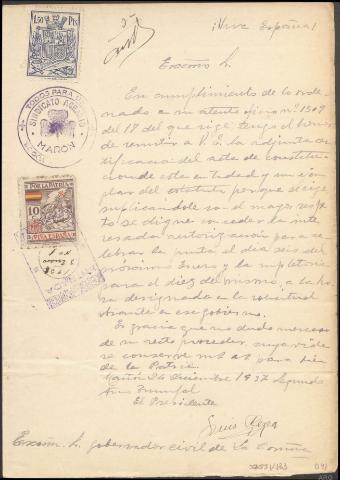 ¡Viva España!
1,50 Pts
Excmo Sr.
TODOS PARA UNO
SINDICATO AGRARIO
MAÑON
En cumplimiento de lo orde-
nado en su atento oficio nº 1509
del 18 del que rige tengo el honor
de remitir a V.E. la adjunta cer-
tificación del acta de constitu-
ción de esta entidad y un ejem-
plar del estatuto porque se rige
suplicándole con el mayor respe-
to se digne conceder la inte-
resada autorización para ce-
lebrar la junta el día seis del
próximo Enero y la supletoria
para el diez del mismo, a la ho-
ra designada en la solicitud
obrante en ese gobierno.
POR LA PATRIA
10
VIVA ESPAÑA
Es gracia que no dudo merecer
de su recto proceder, cuya vida
se conserve m. a. para bien
de la Patria.
Mañón 26 diciembre 1937 Segundo
Año Triunfal
El Presidente
Luis
Excmo. Sr. Gobernador civil de La Coruña